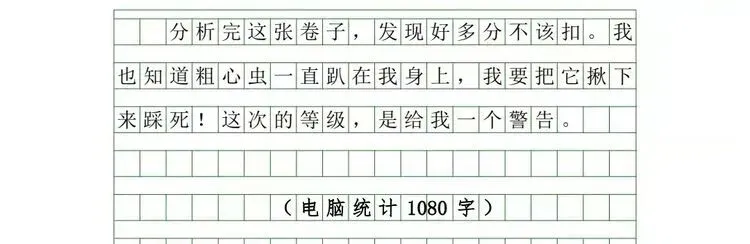 分析完这张卷子，发现好多分不该扣。我
也知道粗心虫一直趴在我身上，我要把它揪下
来踩死！这次的等级，是给我一个警告。
（电脑统计1080字）